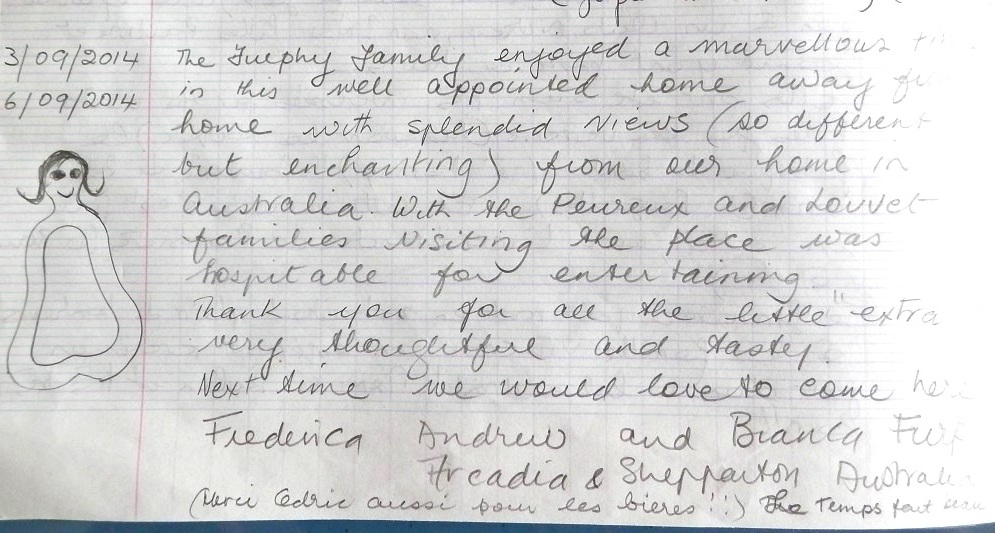 3/09/2014 The Furphy Family enjoyed a marvellous
6/09/2014 in this well appointed home away
home with splendid views (so different
but enchanting) from our home in
Australia. With the Peureux and Louvet
families visiting the place was
hospitable for entertaining.
Thank you for all the little "extra
very thoughtful and tasty.
Next time we would love to come
Frederica Andrew and Bianca
Arcadia & Shepparton Australia
(Merci Cedric aussi pour les bieres!!) Temps fait